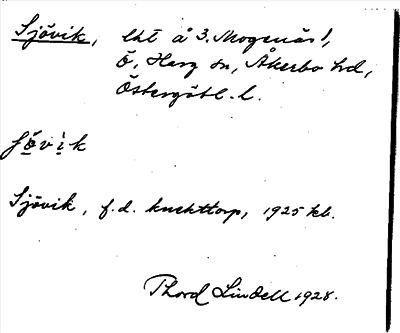 Sjövik, lht å 3. Mogenäs!,
Ö. Harg sn, Åkerbo hd,
Östergötl. l.
Sjövik, f.d. knekttorp, 1925 kb.
Thord Lindell 1928.